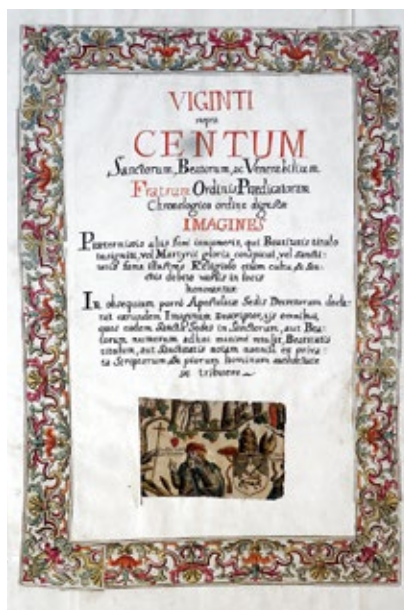 VIGINTI
supra
CENTUM
Sanctorum, Beatorum, ac Venerabilium
Fratrum Ordinis Prædicatorum
Chronologico ordine digestæ
IMAGINES
Prætermissis aliis fere innumeris, qui Beatitatis titulo
insigniti, vel Martyrii gloria conspicui, vel sancti-
tatis fama illustres Religioso etiam cultu,
debito variis in locis
honorantur
In obsequium porro Apostolicæ Sedis Decretorum decla-
rat earundem Imaginum Descriptor, iis omnibus,
quos eadem Sancta Sedes in Sanctorum, aut Bea-
torum numerum adhuc minime retulit, Beatitatis
titulum, aut Sanctitatis notam nonnisi ex priva-
ta Scriptorum, & piorum hominum authoritate
se tribuere